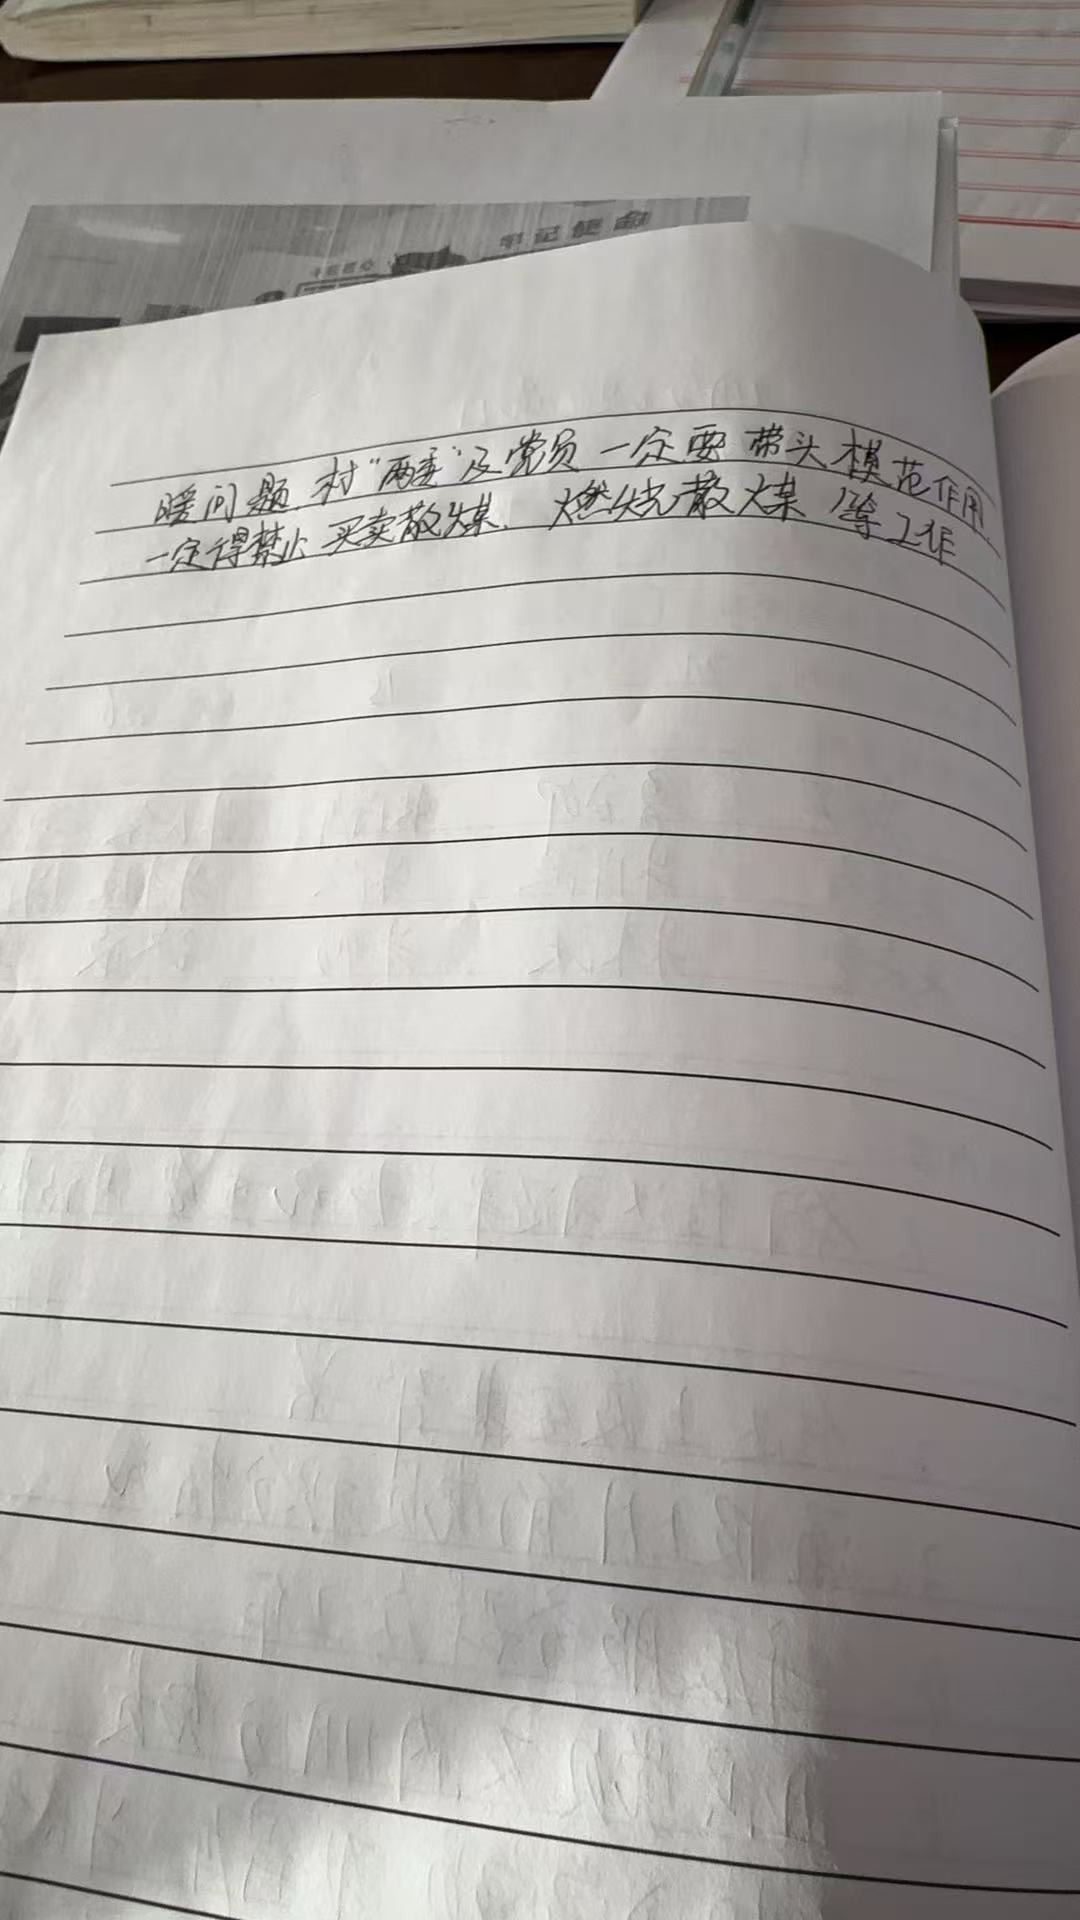 牢记使命
暖问题.村“两委”及党员一定要带头模范作用.
一定得禁止买卖散煤.燃烧散煤等工作